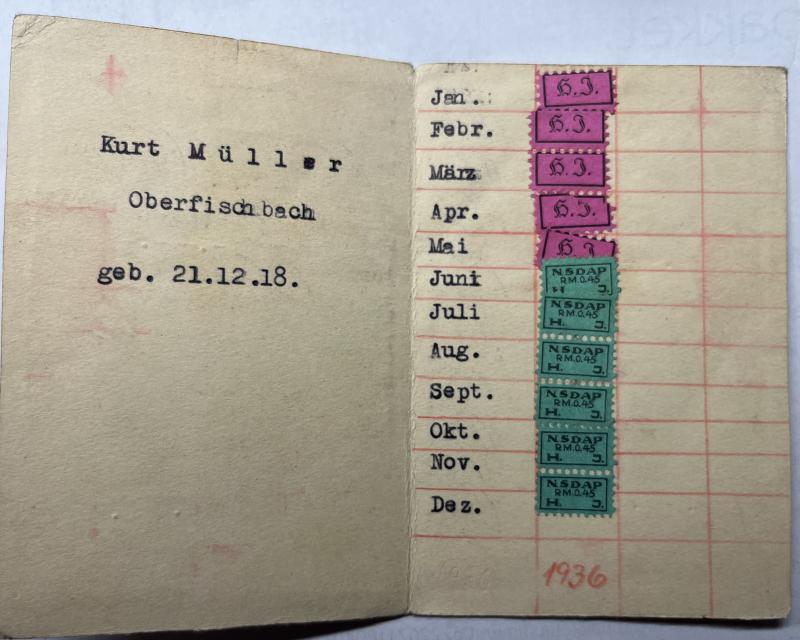 Kurt Müller
Oberfischbach
geb. 21.12.18.
Jan. H.J.
Febr. H.J.
März H.J.
Apr. H.J.
Mai H.J.
Juni NSDAP
RM.0.45
H. J.
Juli NSDAP
RM.0.45
H. J.
Aug. NSDAP
RM.0.45
H. J.
Sept. NSDAP
RM.0.45
H. J.
Okt. NSDAP
RM.0.45
H. J.
Nov.
Dez. NSDAP
RM.0.45
H. J.
1936